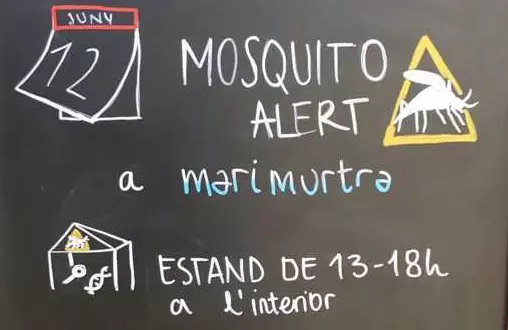 JUNY
12
MOSQUITO
ALERT
a marimurtra
ESTAND DE 13-18h
a l'interior